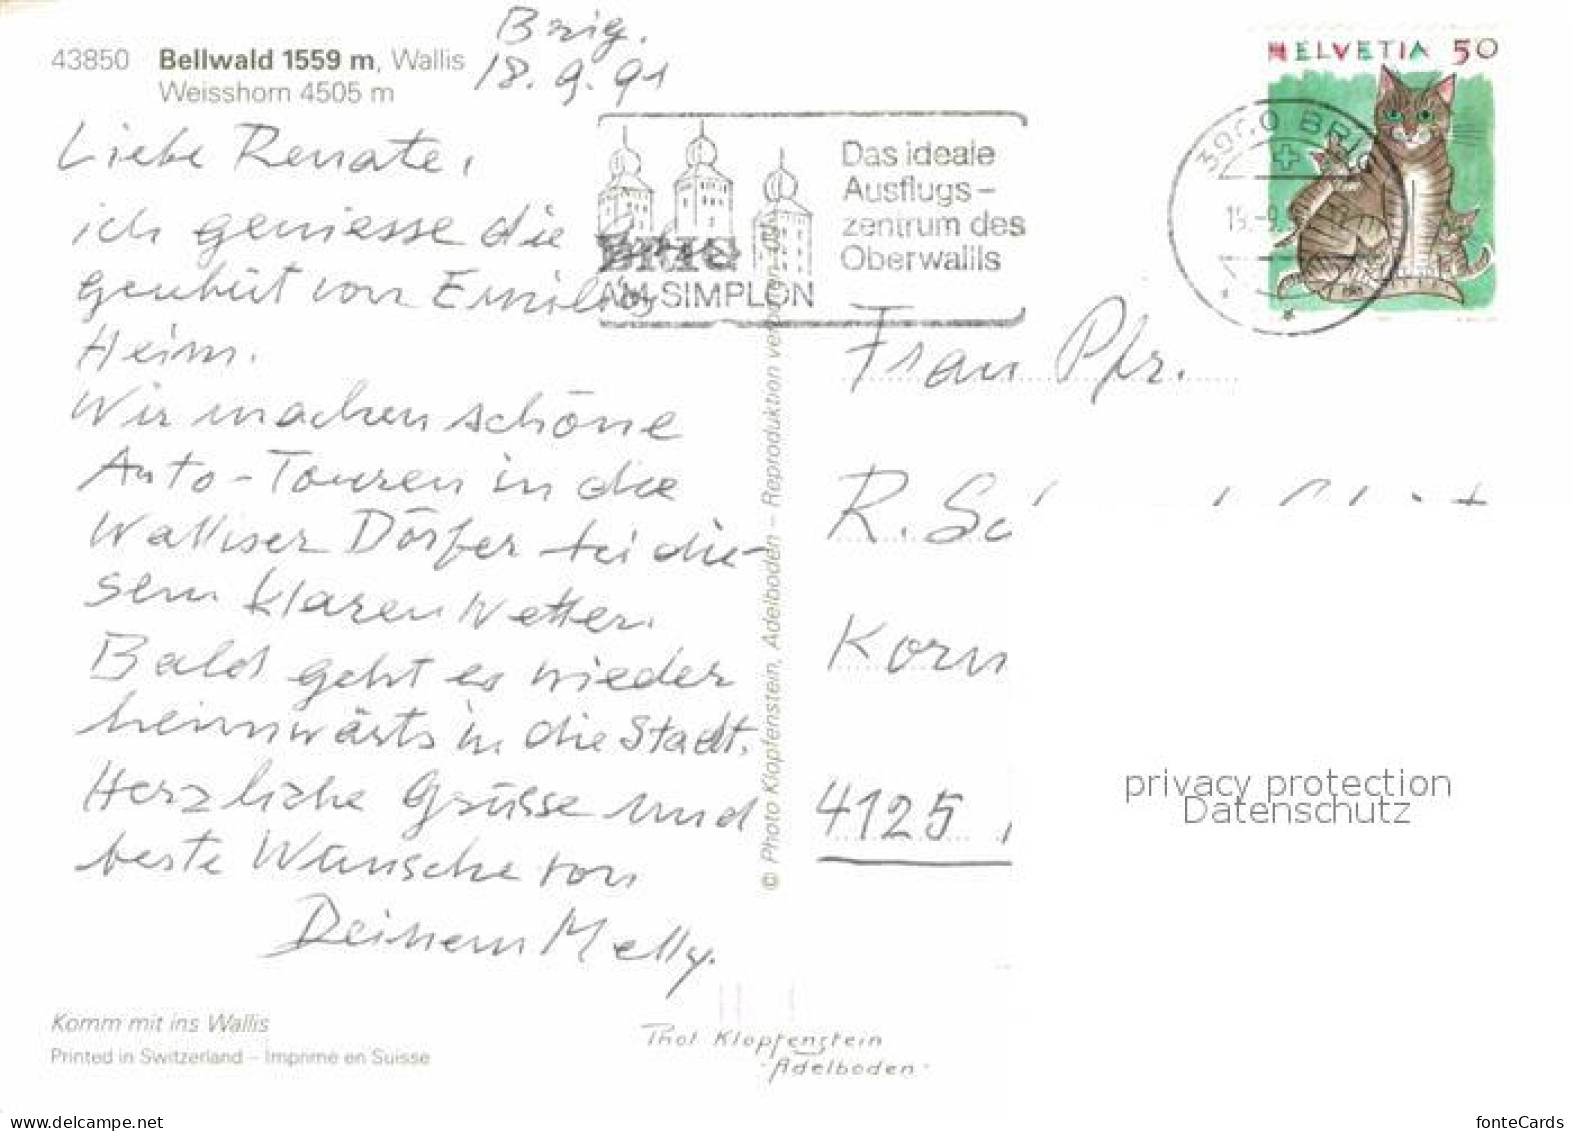 Brig.
18.9.91
43850 Bellwald 1559 m, Wallis
Weisshorn 4505 m
HELVETIA 50
3900 BRIG
Das ideale
Ausflugs-
zentrum des
Oberwallis
BRIG
AM SIMPLON
Liebe Renate,
ich geniesse die
von
Heim.
Wir machen schöne
Auto-Touren in die
Walliser Dörfer bei die-
sem klaren Wetter.
Bald geht es wieder
heimwärts in die Stadt.
Herzliche Grüsse und
beste Wünsche von
Deinem Melly.
Frau Pfr.
R. Sc
Korn
4125
© Photo Klopfenstein, Adelboden – Reproduktion verboten
privacy protection
Datenschutz
Komm mit ins Wallis
Printed in Switzerland – Imprimé en Suisse
Phot Klopfenstein
Adelboden
www.delcampe.net
fonteCards